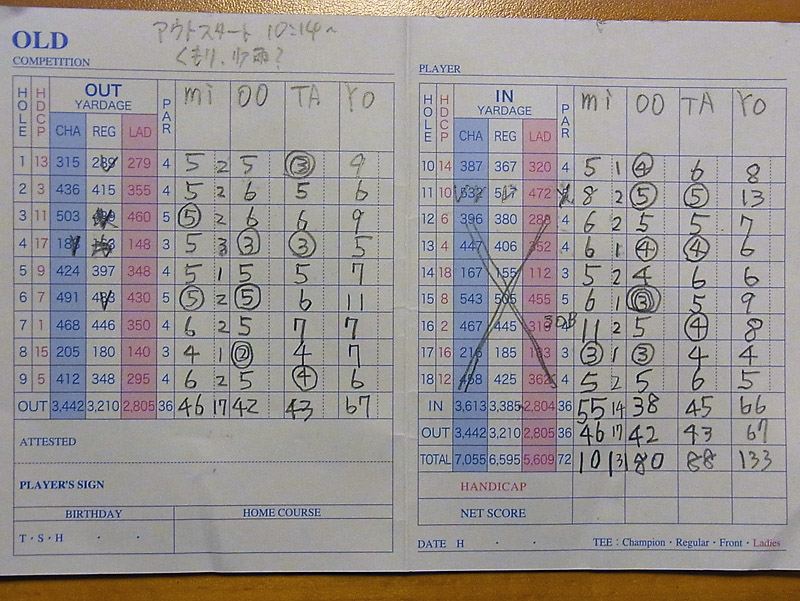 OLD
COMPETITION
アウトスタート 10:14〜
くもり、少雨?
HOLE HDCP OUT YARDAGE PAR mi OO TA YO
CHA REG LAD
1 13 315 289 279 4 5 2 5 3 9
2 3 436 415 355 4 5 2 6 5 6
3 11 503 460 5 5 2 6 6 9
4 17 148 3 5 3 3 3 5
5 9 424 397 348 4 5 1 5 5 7
6 7 491 430 5 5 2 5 6 11
7 1 468 446 350 4 6 2 5 7 7
8 15 205 180 140 3 4 1 2 4 7
9 5 412 348 295 4 6 2 5 4 6
OUT 3,442 3,210 2,805 36 46 17 42 43 67
ATTESTED
PLAYER'S SIGN
BIRTHDAY HOME COURSE
T・S・H ・ ・
PLAYER
HOLE HDCP IN YARDAGE PAR mi OO TA YO
CHA REG LAD
10 14 387 367 320 4 5 1 4 6 8
11 10 532 517 472 8 2 5 5 13
12 6 396 380 288 4 6 2 5 5 7
13 4 447 406 352 4 6 1 4 4 6
14 18 167 155 112 3 5 2 4 6 6
15 8 543 505 455 5 6 1 3 5 9
16 2 467 445 4 11 2 5 4 8
3OB
17 16 185 3 3 1 3 4 4
18 12 425 362 4 5 2 5 6 5
IN 3,613 3,385 2,804 36 55 14 38 45 66
OUT 3,442 3,210 2,805 36 46 17 42 43 67
TOTAL 7,055 6,595 5,609 72 101 31 80 88 133
HANDICAP
NET SCORE
DATE H ・ ・ TEE：Champion・Regular・Front・Ladies